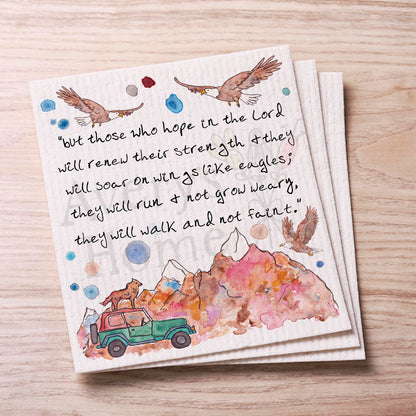 "but those who hope in the Lord
will renew their strength & they
will soar on wings like eagles;
they will run & not grow weary,
they will walk and not faint."